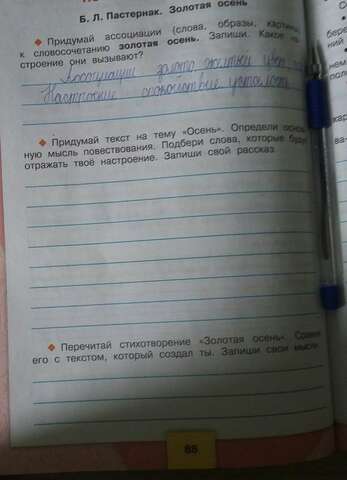 Б. Л. Пастернак. Золотая осень
◆ Придумай ассоциации (слова, образы, картины)
к словосочетанию золотая осень. Запиши. Какое на-
строение они вызывают?
Ассоциации золото, желтый цвет
Настроение спокойствие усталость
◆ Придумай текст на тему «Осень». Определи основ-
ную мысль повествования. Подбери слова, которые будут
отражать твоё настроение. Запиши свой рассказ.
◆ Перечитай стихотворение «Золотая осень». Сравни
его с текстом, который создал ты. Запиши свои мысли.
88